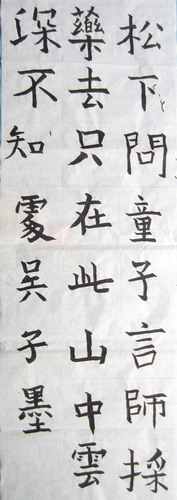 松下問童子言師採
藥去只在此山中雲
深不知處吳子墨